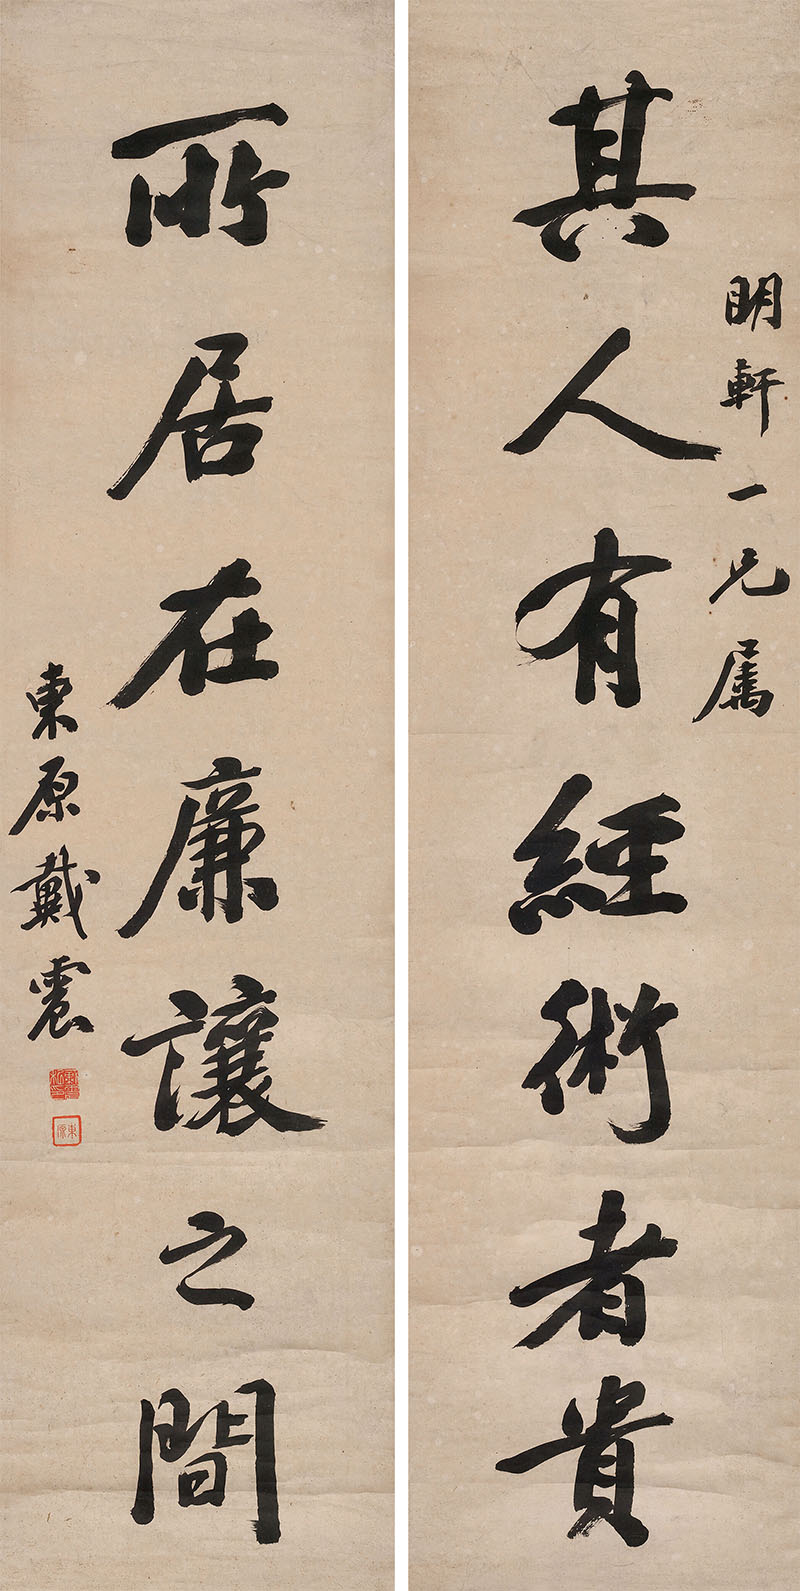 明軒一兄屬
其人有經術者貴
所居在廉讓之間
東原戴震
東原